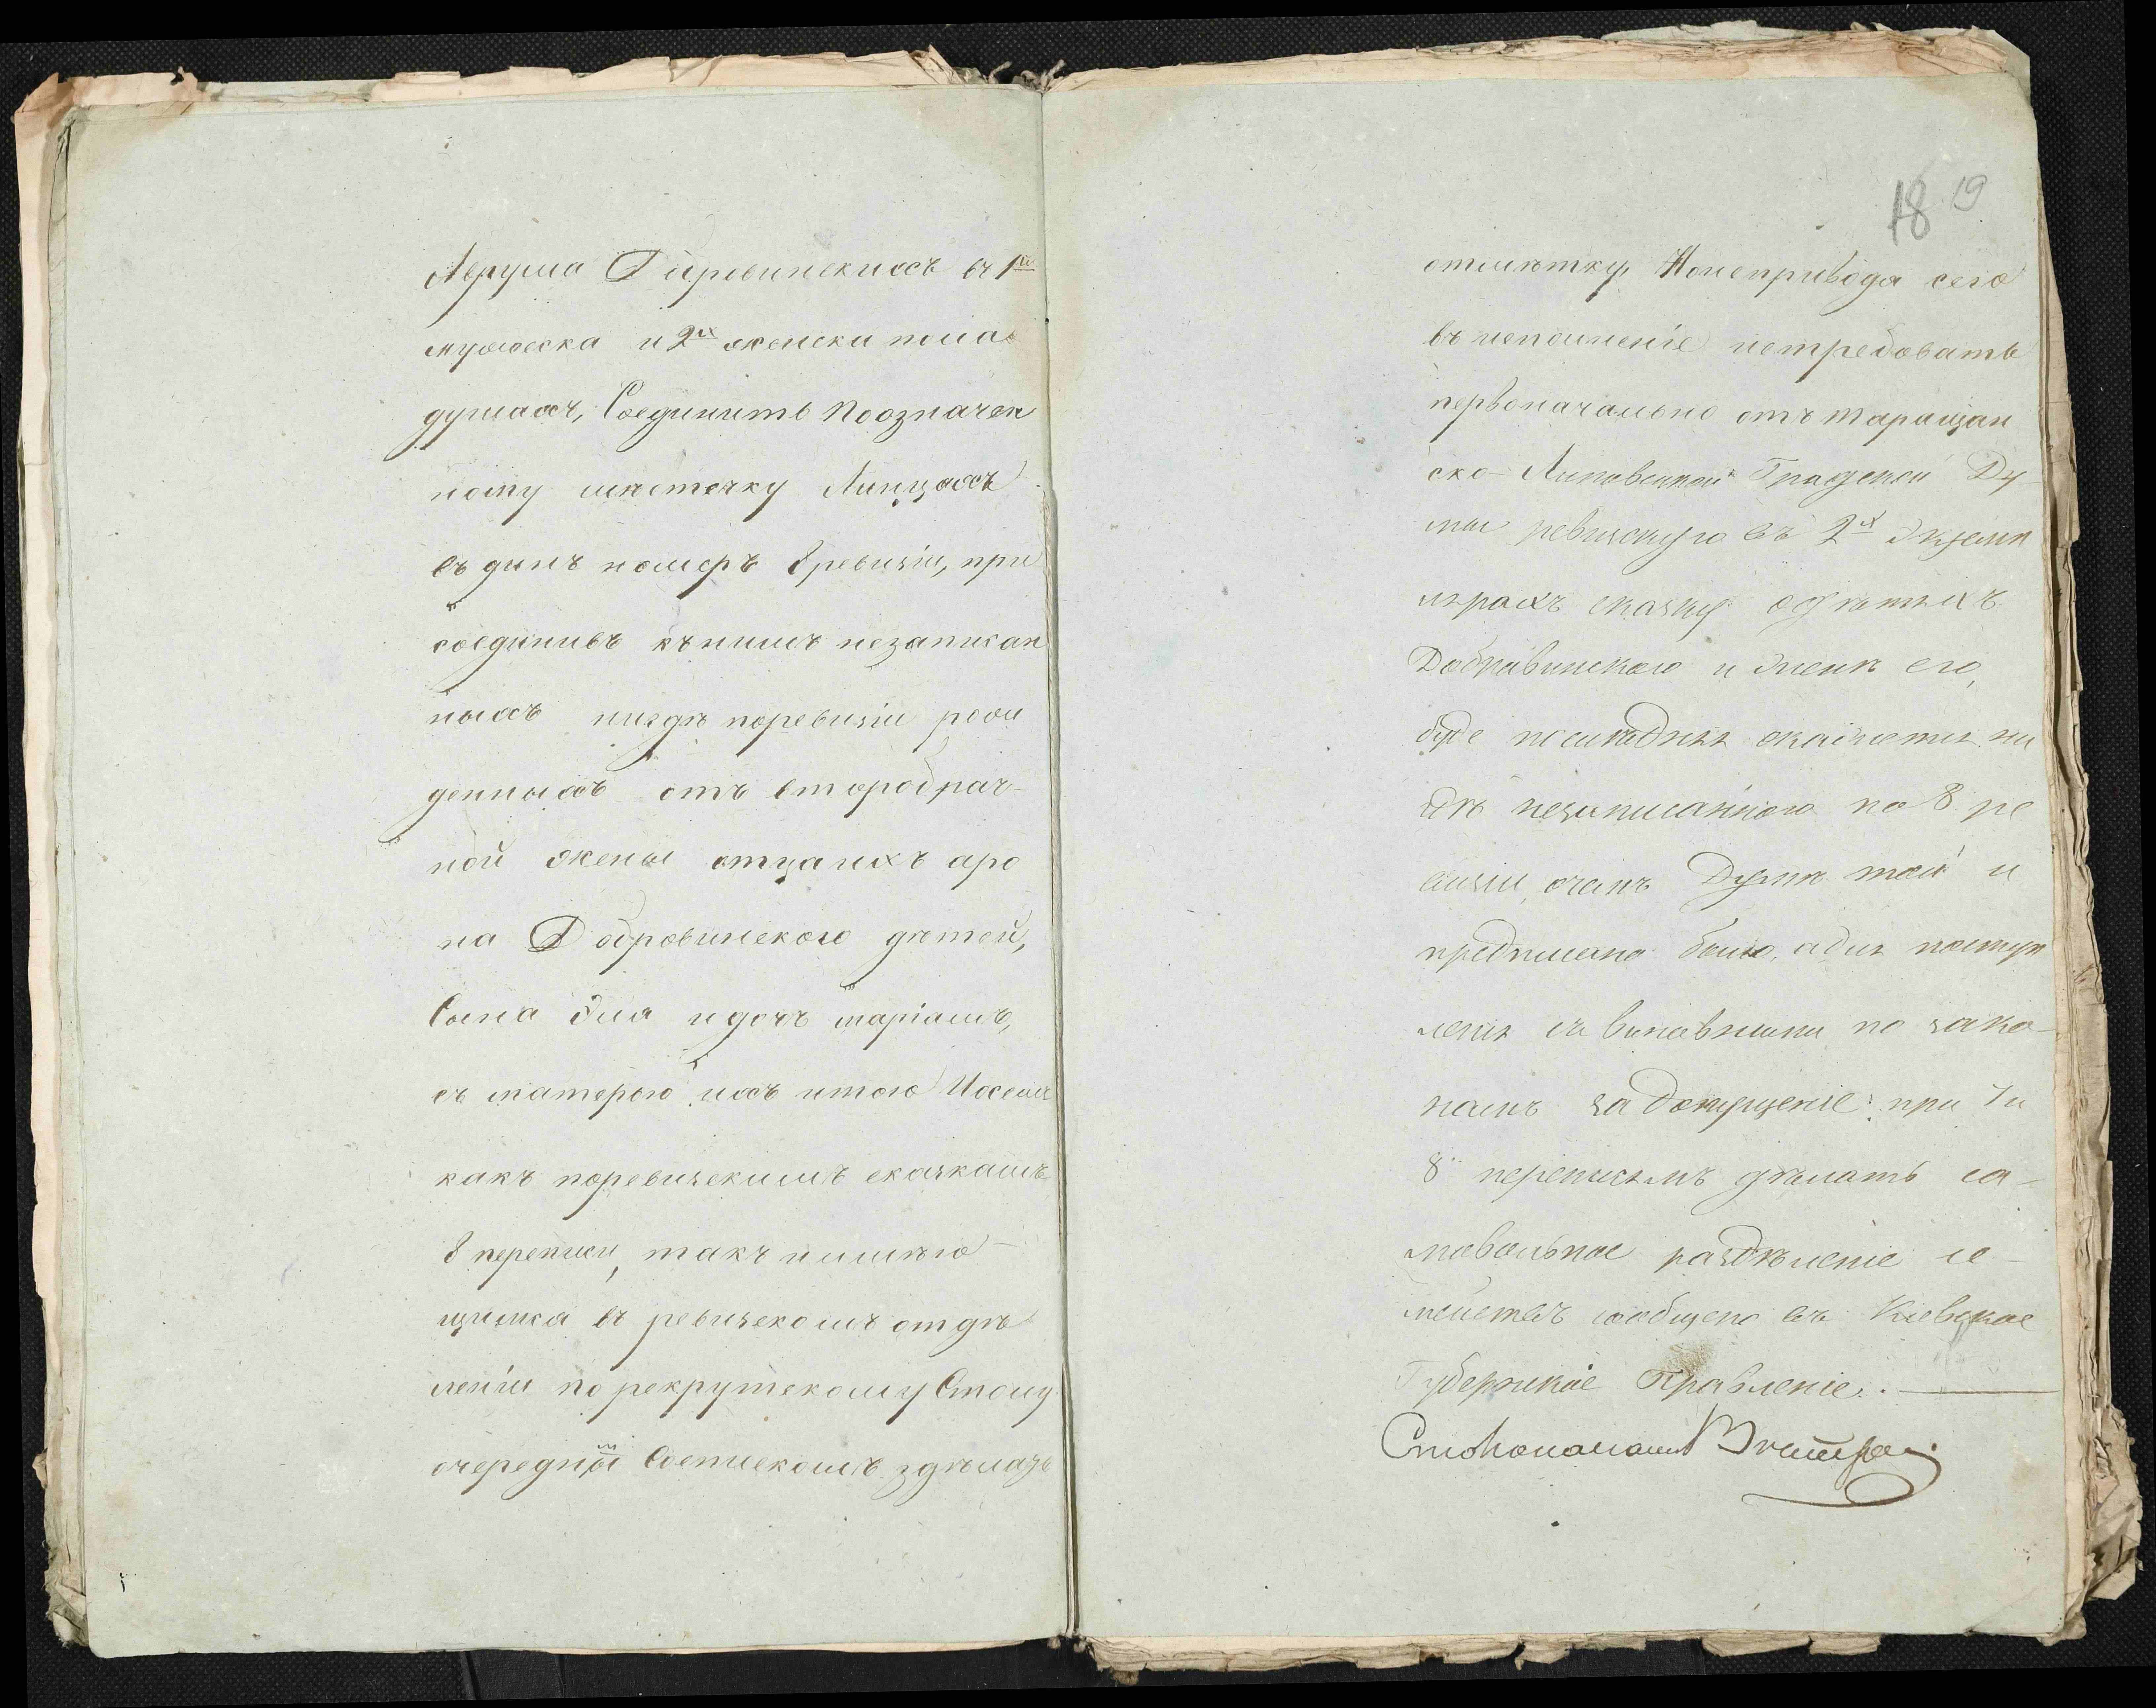 Лерума Добровинскихъ въ 1й
мужеска и 2хъ женска пола
душахъ, Соединить поозначен
ному мѣстечку Липцахъ
въ динъ номеръ 8 ревизіи, при
соединивъ къ нимъ незаписан
ныхъ нигдѣ поревизіи рож
денныхъ отъ второбрач-
ной жены отца ихъ аро
на Добровинского дѣтей,
Сына Эля и дочь маріамъ,
съ матерью ихъ итою Иосемъ
какъ поревизскимъ сказкамъ
8 переписи, такъ и имѣю-
щимся въ ревизскомъ отдѣ
леніи по рекрутскому Столу
очереднымъ Спискомъ здѣлать
18 19
отмѣтку. Но неприводя сего
въ исполненіе истребовать
первоначально отъ таращан
ско- Липовецкой Градской Ду-
мы ревизскую въ 2х экземп
лярахъ сказку о дѣтяхъ
Добравинского и женѣ его,
буде послѣдняя окажется ни
гдѣ незаписанною по 8 ре
визіи, о чемъ Думѣ той и
предписано было, а для поступ
ленія съ виновными по зако-
намъ за допущеніе: при 7 и
8 переписямъ дѣлать са-
мовольное раздѣленіе се-
мействъ сообщено въ Кіевское
Губернское Правленіе.
Столоначальникъ